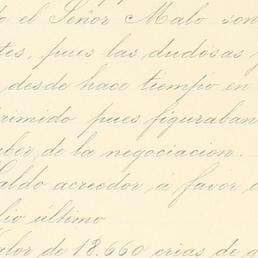 o el Señor Malo son
tes, pues las dudosas y
desde hace tiempo en
pues figuraban
ber de la negociacion.
aldo acreedor á favor d
lio último
alor de 18.660 crias de g